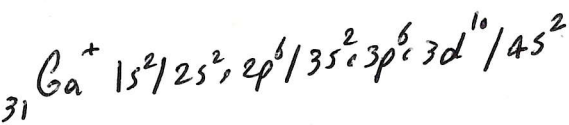 ₃₁Ga⁺ 1s²/2s², 2p⁶/3s², 3p⁶, 3d¹⁰/4s²